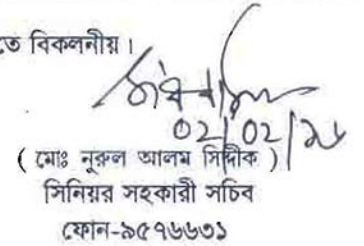 তে বিকলনীয়।
০২/০২/২৬
( মোঃ নূরুল আলম সিদ্দীক )
সিনিয়র সহকারী সচিব
ফোন-৯৫৭৬৬৩১